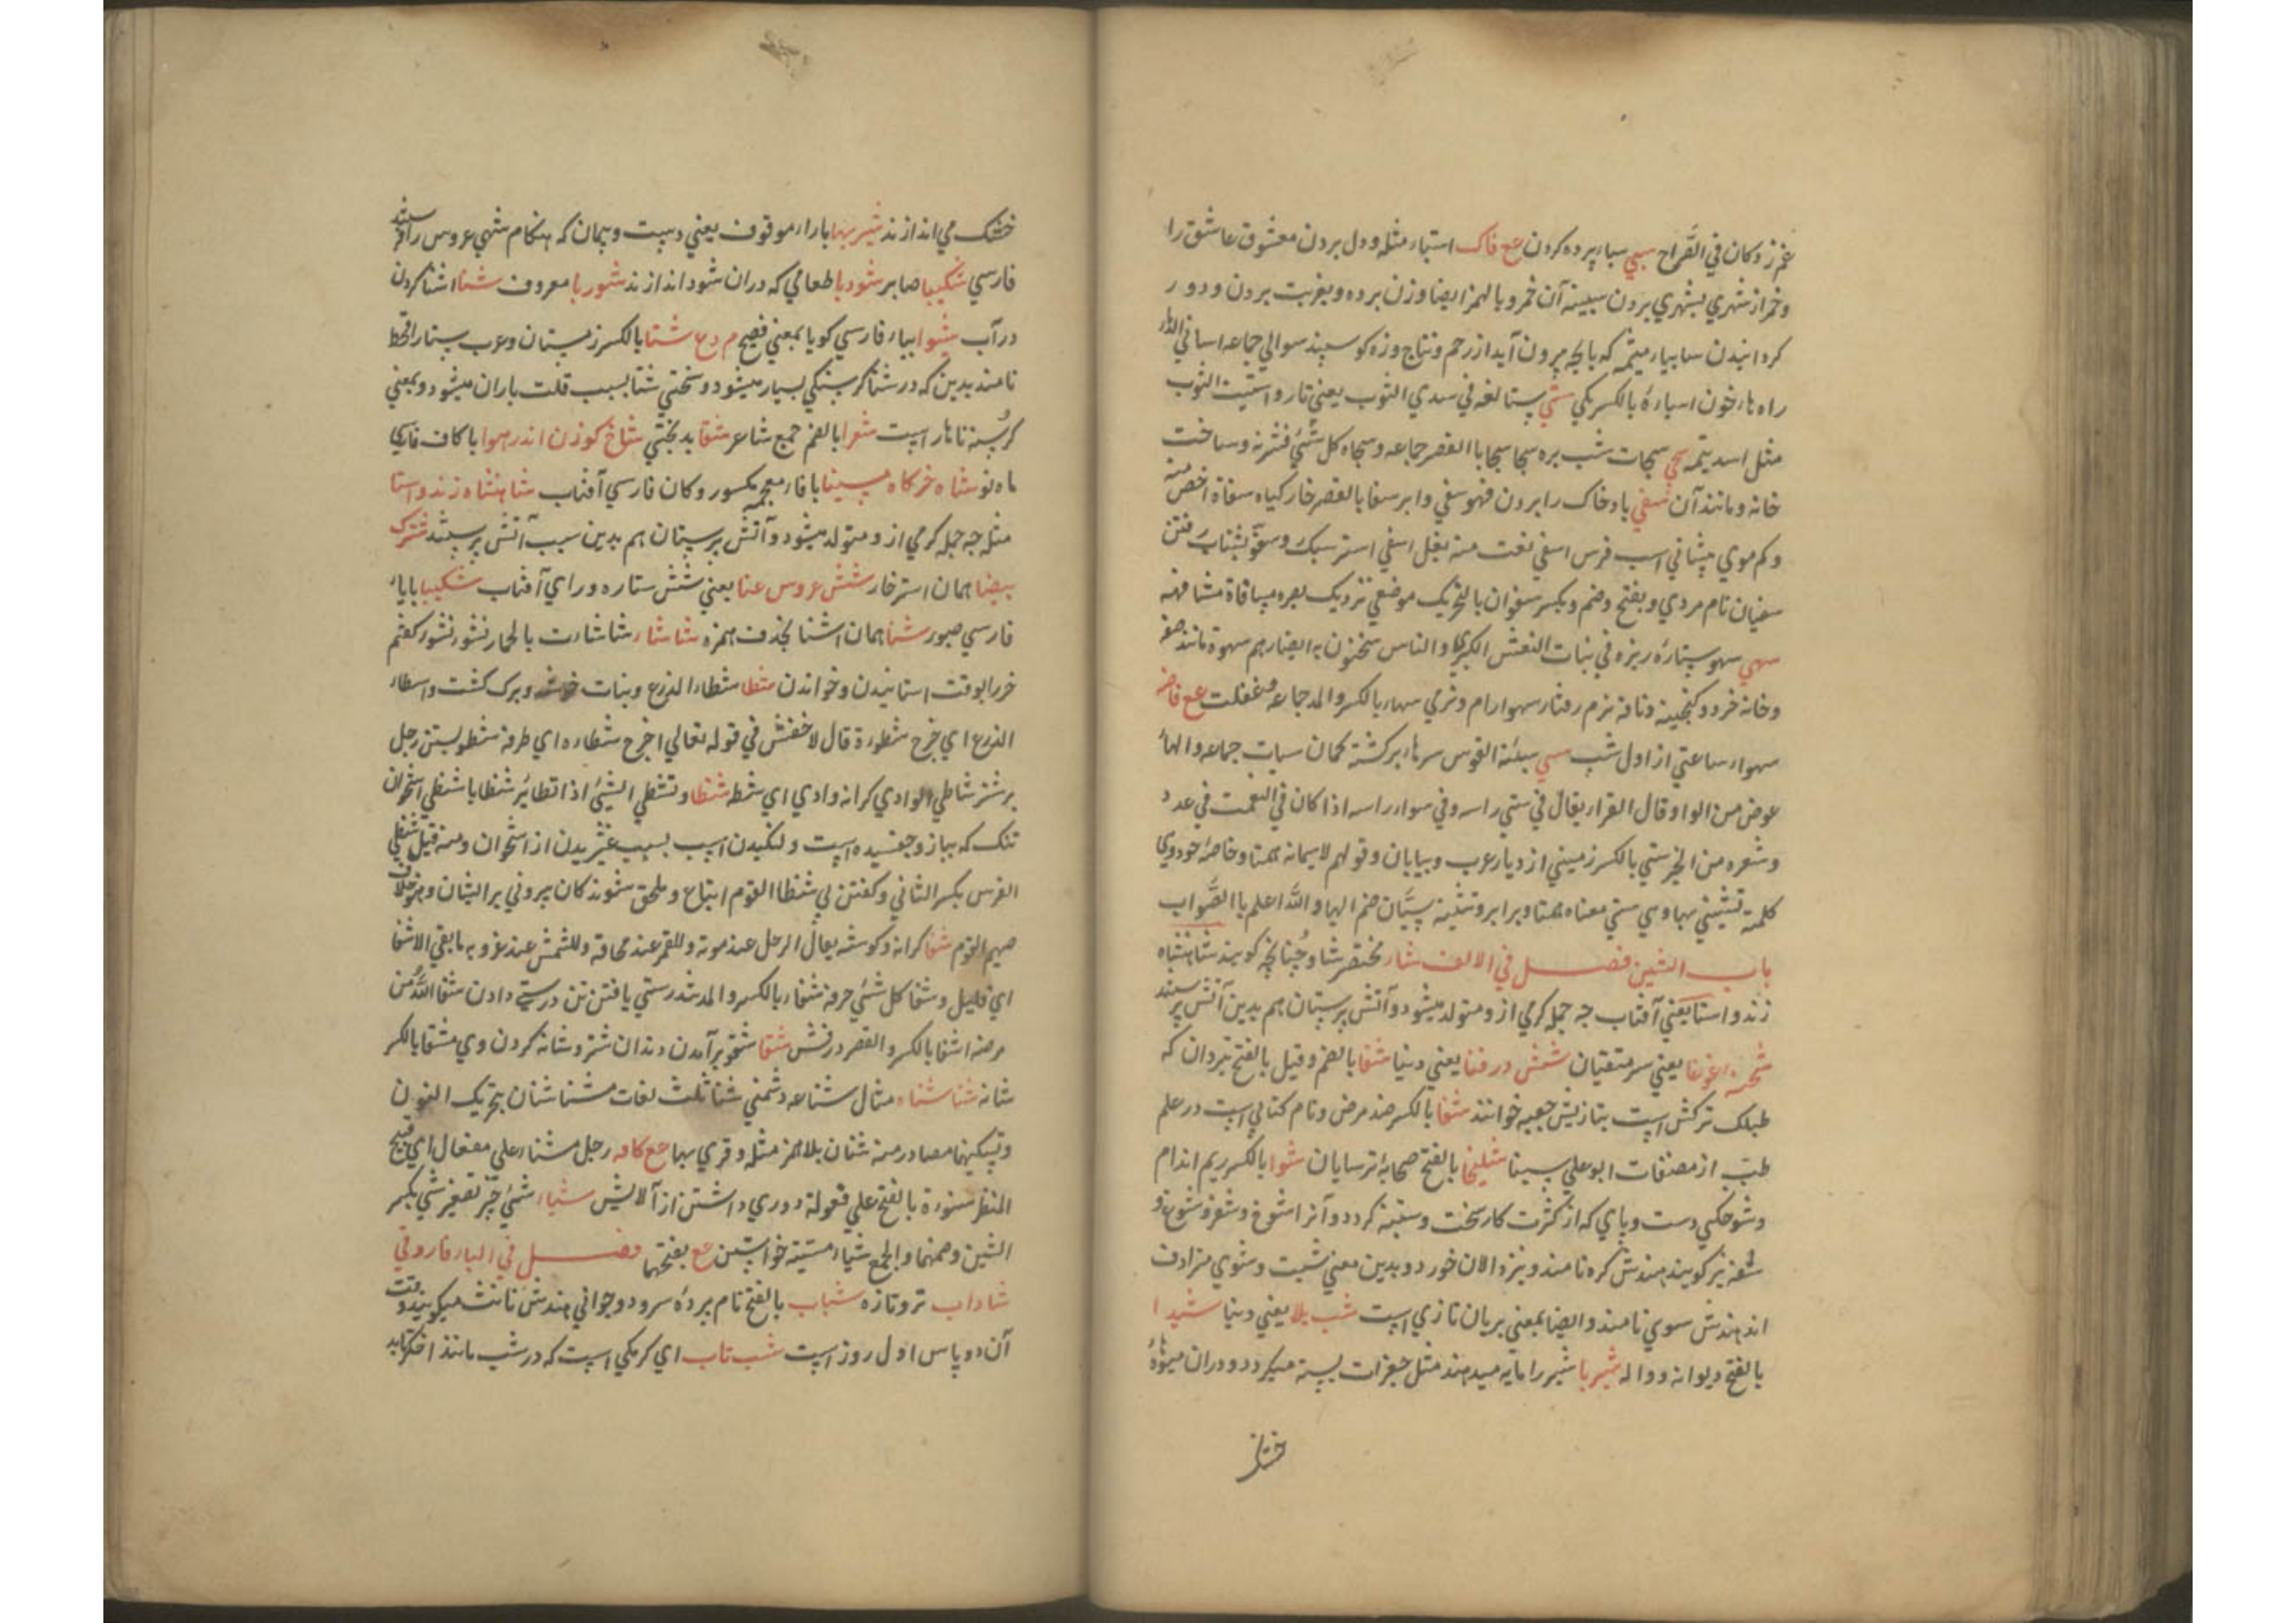 غم زد و کان في الصراح سبي سبا بر پرده کردن ع فاک استبا مثله و دل بردن معشوق عاشق را
و خمر از شهري بشهري بردن سبيئه آن خمر و بالهمز ايضا وزن برده و بغربت بردن و دور
کردانيدن سابياء ميثمه که با بچه برون آيد از رحم و نتاج وزه کوسپند سوالي جماعه اسابي الدماء
راه هاء خون اسباءة بالکسر يکي ستي ستا لغه في سدي الثوب يعني تار و استيت الثوب
مثل اسديته سجي سجات شب بره سجا سجايا القصر جماعه و سجاه کل شئ قشرته و ساخت
خانه و مانند آن سفي باد خاک را بردن فهو سفي و ابر سفا بالقصر خار کياه سفاة اخص منه
و کم موي پيشاني اسب فرس اسفي نعت منه بغل اسفي استر سبک و سفو بشتاب رفتن
سفيان نام مردي و بفتح و ضم و بکسر سفوان بالتحريک موضعي نزديک بصره مسافاة مشافهه
سهي سهو ستارهٔ ريزه في بنات النعش الکبري و الناس يمتحنون به ابصارهم سهوة مانند صفه
و خانه خرد و کنجينه و ناقه نرم رفتار سهوا رام و نرمي سهاء بالکسر و المد جماعه و غفلت ع فاضه
سهواء ساعتي از اول شب سي سيئة القوس سرهاء برکشته کمان سيات جماعه و الهاء
عوض من الواو قال الفراء يقال في سي راسه و في سواء راسه اذا کان في النعمت في عدد
و شعره من الخير سي بالکسر زميني از ديار عرب و بيابان و قولهم لاسيما نه همتا و خاصهٔ خود وي
کلمة تستثني بها وسي معناه همتا و برابر و تثنيه سيّان ضم اليها و الله اعلم با الصَّواب
باب الشين فصل في الالف شار مختصر شاد چنانچه کويند شاهنشاه
زند و استا يعني آفتاب چه جمله کرمي از و متولد ميشود و آتش پرستان هم بدين آتش پرستند
شحنه غوغا يعني سر متقيان شش در فنا يعني دنيا شفا بالضم و قيل بالفتح تيردان که
طبلک ترکش است بتازيش جعبه خوانند شفا بالکسر ضد مرض و نام کتابي است در علم
طب از مصنفات ابو علي سينا شليخا بالفتح صحابهٔ ترسايان شوا بالکسر ريم اندام
و شوخکي دست و پاي که از کثرت کار سخت و ستبه کردد و آنرا شوغ و شغر و شوخ و
شغه نيز کويند هندش کره نامند و نيزه الان خورد و بدين معني شبت و شوي مترادف
اند هندش سوي نامند و ايضا بمعني بريان تازي است شب يلا يعني دنيا شيدا
بالفتح ديوانه و واله شير با شير را مايه ميدهند مثل جغرات بسته ميکردد و دران ميوهٔ
خشک
خشک مي اندازند شير بها با راء موقوف يعني دست و پيمان که هنکام شهي عروس را فرستند
فارسي شکيبا صابر شود با طعامي که دران شود اندازند شوربا معروف شنا اشنا کردن
در آب شيوا بباء فارسي کويا بمعني فصيح م دع شتا بالکسر زمستان و عرب ستار اقحط
نامند بدين که در شتا کرسنکي بسيار ميشود و سختي شتا بسبب قلت باران ميشود و بمعني
کرسنه ناهار است شعرا بالضم جمع شاعر شقا بدبختي شاخ کوزن اندر هوا با کاف فارسي
ماه نو شاه خرکاه مينا با فاء معجمه مکسور و کان فارسي آفتاب شاهنشاه زند و استا
مثله چه جمله کرمي از و متولد ميشود و آتش پرستان هم بدين سبب آتش پرستند شترک
بيضا همان استر خار شش عروس عنا يعني شش ستاره وراي آفتاب شکيبا با ياء
فارسي صبور شنا همان اشنا بحذف همزه شاشاء شاشات بالحمار تشوء تشوء کفتم
خر را بوقت استانيدن و خواندن شطا شطاء الزرع و نبات خوشه و برک کشت و اسطاء
الزرع اي خرج شطوءة قال لاخفش في قوله تعالي اخرج شطاره اي طرفه شطو بستن رجل
بر شتر شاطي الوادي کرانه وادي اي شط شنظا و تشظي الشئ اذا تطاير شظايا شظي استخوان
تنک که بباز و چفسيده است و لنکيدن اسپ بسبب لغزيدن از استخوان و منه قيل شظي
الفرس بکسر الثاني و کفتن لي شظا القوم اتباع و ملحق شوند کان بيروني بر ايشان و هو خلاف
صميم القوم شفا کرانه و کوشه يقال الرجل عند موته و للقمر عند محاقه و للشمس عند غروبه مابقي الا شفا
اي قليل و شفا کل شئ حرفه شفاء بالکسر و المد تندرستي يافتن تن درستي دادن شفا الله من
مرضه اشفا بالکسر و القصر درفش شقا شقو بر آمدن دندان شتر و شانه کردن وي مشقا بالکسر
شانه شنا شناء مثال شناعه دشمني شنا ثلث لغات مشنا شنان بتحريک النون
و تسکينها مصادر منه شنان بلا همز مثله و قري بهما ع کافه رجل مشناء علي مفعال اي قبيح
المنظر شنوءة بالفتح علي فعولة دوري داشتن از آلايش شياء شئ چيز تصغير شئ بکسر
الشين و ضمها و الجمع شياء مشيئة خواستن ع بفتحهما فصل في الباء فارو في
شاداب تر و تازه شباب بالفتح نام پردهٔ سرود و جواني هندش نانث ميکويند و وقت
آن دو پاس اول روز است شب تاب اي کرمکي است که در شب مانند اخکر تابد